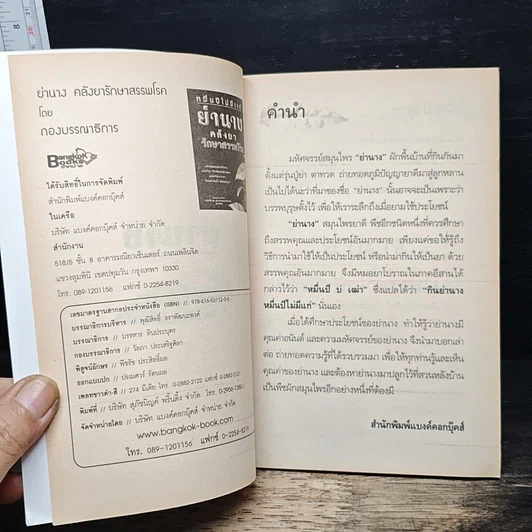 ย่านาง คลังยารักษาสรรพโรค
โดย
กองบรรณาธิการ
Bangkok
Books
ได้รับสิทธิ์ในการจัดพิมพ์
สำนักพิมพ์แบงค์คอกบุ๊คส์
ในเครือ
บริษัท แบงค์คอกบุ๊คส์ จำหน่าย จำกัด
สำนักงาน
518/5 ชั้น 8 อาคารมณียาเซ็นเตอร์ ถนนเพลินจิต
แขวงลุมพินี เขตปทุมวัน กรุงเทพฯ 10330
โทร. 089-1201156 แฟกซ์ 0-2254-8219
เลขมาตรฐานสากลประจำหนังสือ (ISBN) // 978-616-53112-3-6
บรรณาธิการบริหาร // พุฒิสิทธิ์
บรรณาธิการ //
กองบรรณาธิการ // วัลภา ประเสริฐศิลา
พิสูจน์อักษร // พีชรัช ประสิทธิ์ผล
ออกแบบปก // ปณมศวร์ รัตนผล
เพลทขาวดำ-สี // 274 มีเดีย โทร. 0-2882-2122 แฟกซ์ 0-2880-2551
พิมพ์ที่ // บริษัท สุภัชนิญค์ พริ้นติ้ง จำกัด โทร.
จัดจำหน่ายโดย // บริษัท แบงค์คอกบุ๊คส์ จำหน่าย จำกัด
www.bangkok-book.com
โทร. 089-1201156 แฟกซ์ 0-2254-8219
หมื่นปีไม่แก่
ย่านาง
คลังยา
รักษาสรรพโรค
คำนำ
มหัศจรรย์สมุนไพร "ย่านาง" ผักพื้นบ้านที่กินกันมา
ตั้งแต่รุ่นปู่ย่า ตาทวด ถ่ายทอดภูมิปัญญายาดีมาสู่ลูกหลาน
เป็นไปได้นะว่าที่มาของชื่อ "ย่านาง" นั้นอาจจะเป็นเพราะว่า
บรรพบุรุษตั้งไว้ เพื่อให้เราระลึกถึงเมื่อยามใช้ประโยชน์
"ย่านาง" สมุนไพรยาดี พืชอีกชนิดหนึ่งที่ควรศึกษา
ถึงสรรพคุณและประโยชน์อันมากมาย เพียงแค่ขอให้รู้ถึง
วิธีการนำมาใช้ให้เป็นประโยชน์ หรือนำมากินให้เป็นยา ด้วย
สรรพคุณอันมากมาย จึงมีหมอยาโบราณในภาคอีสานได้
กล่าวไว้ว่า "หมื่นปี บ่ เฒ่า" ซึ่งแปลได้ว่า "กินย่านาง
หมื่นปีไม่มีแก่" นั่นเอง
เมื่อได้ศึกษาประโยชน์ของย่านาง ทำให้รู้ว่าย่านางมี
คุณค่าอนันต์ และความมหัศจรรย์ของย่านาง จึงนำมาบอกเล่า
ต่อ ถ่ายทอดความรู้ที่ได้รวบรวมมา เพื่อให้ทุกท่านรู้และเห็น
คุณค่าของย่านาง และต้องหาย่านางมาปลูกไว้ที่สวนหลังบ้าน
เป็นพืชผักสมุนไพรอีกอย่างหนึ่งที่ต้องมี
สำนักพิมพ์แบงค์คอกบุ๊คส์